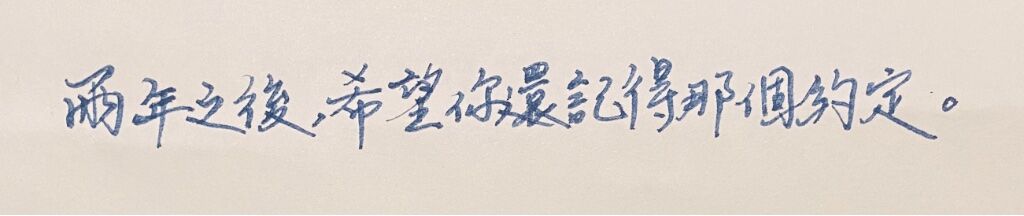 兩年之後,希望你還記得那個約定。